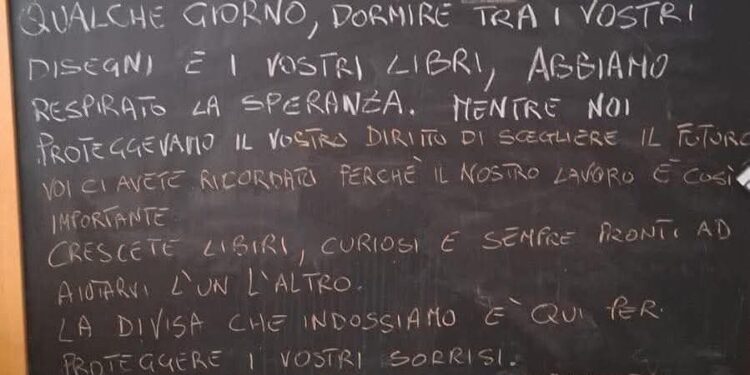 QUALCHE GIORNO, DORMIRE TRA I VOSTRI
DISEGNI E I VOSTRI LIBRI, ABBIAMO
RESPIRATO LA SPERANZA. MENTRE NOI
PROTEGGEVAMO IL VOSTRO DIRITO DI SCEGLIERE IL FUTURO
VOI CI AVETE RICORDATO PERCHÈ IL NOSTRO LAVORO È COSI
IMPORTANTE
CRESCETE LIBIRI, CURIOSI E SEMPRE PRONTI AD
AIUTARVI L'UN L'ALTRO.
LA DIVISA CHE INDOSSIAMO È QUI PER
PROTEGGERE I VOSTRI SORRISI.